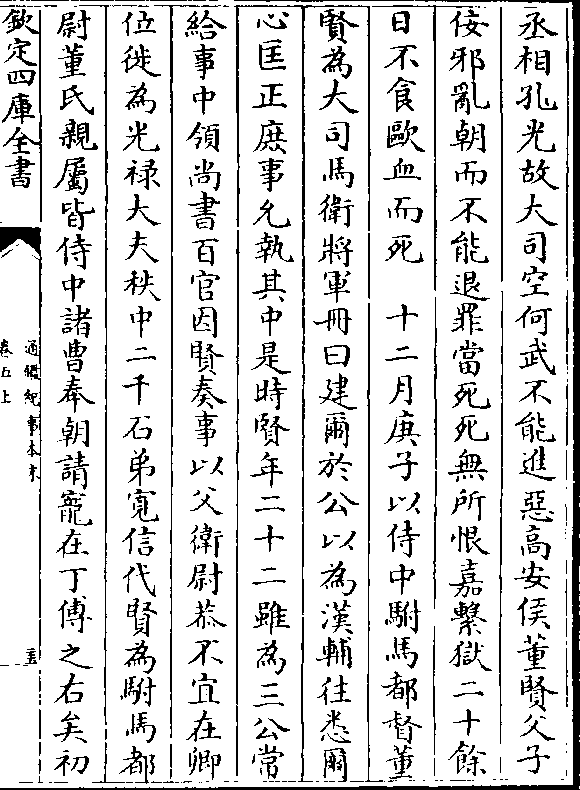 丞相孔光故大司空何武不能進惡高安侯董賢父子
佞邪亂朝而不能退罪當死死無所恨嘉繫獄二十餘
日不食歐血而死　十二月庚子以侍中駙馬都督董
賢為大司馬衛將軍冊曰建爾於公以為漢輔往悉爾
心匡正庶事允執其中是時賢年二十二雖為三公常
給事中領尚書百官因賢奏事以父衛尉恭不宜在卿
位徙為光祿大夫秩中二千石弟寛信代賢為駙馬都
尉董氏親屬皆侍中諸曹奉朝請寵在丁傅之右矣初
欽定四庫全書
通鑑紀事本末
卷五上